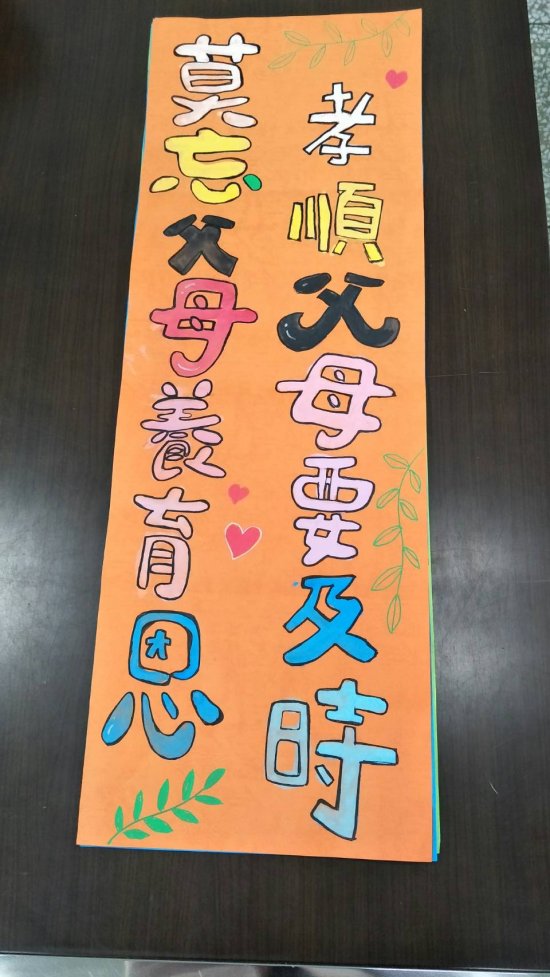 孝順父母要及時
莫忘父母養育恩